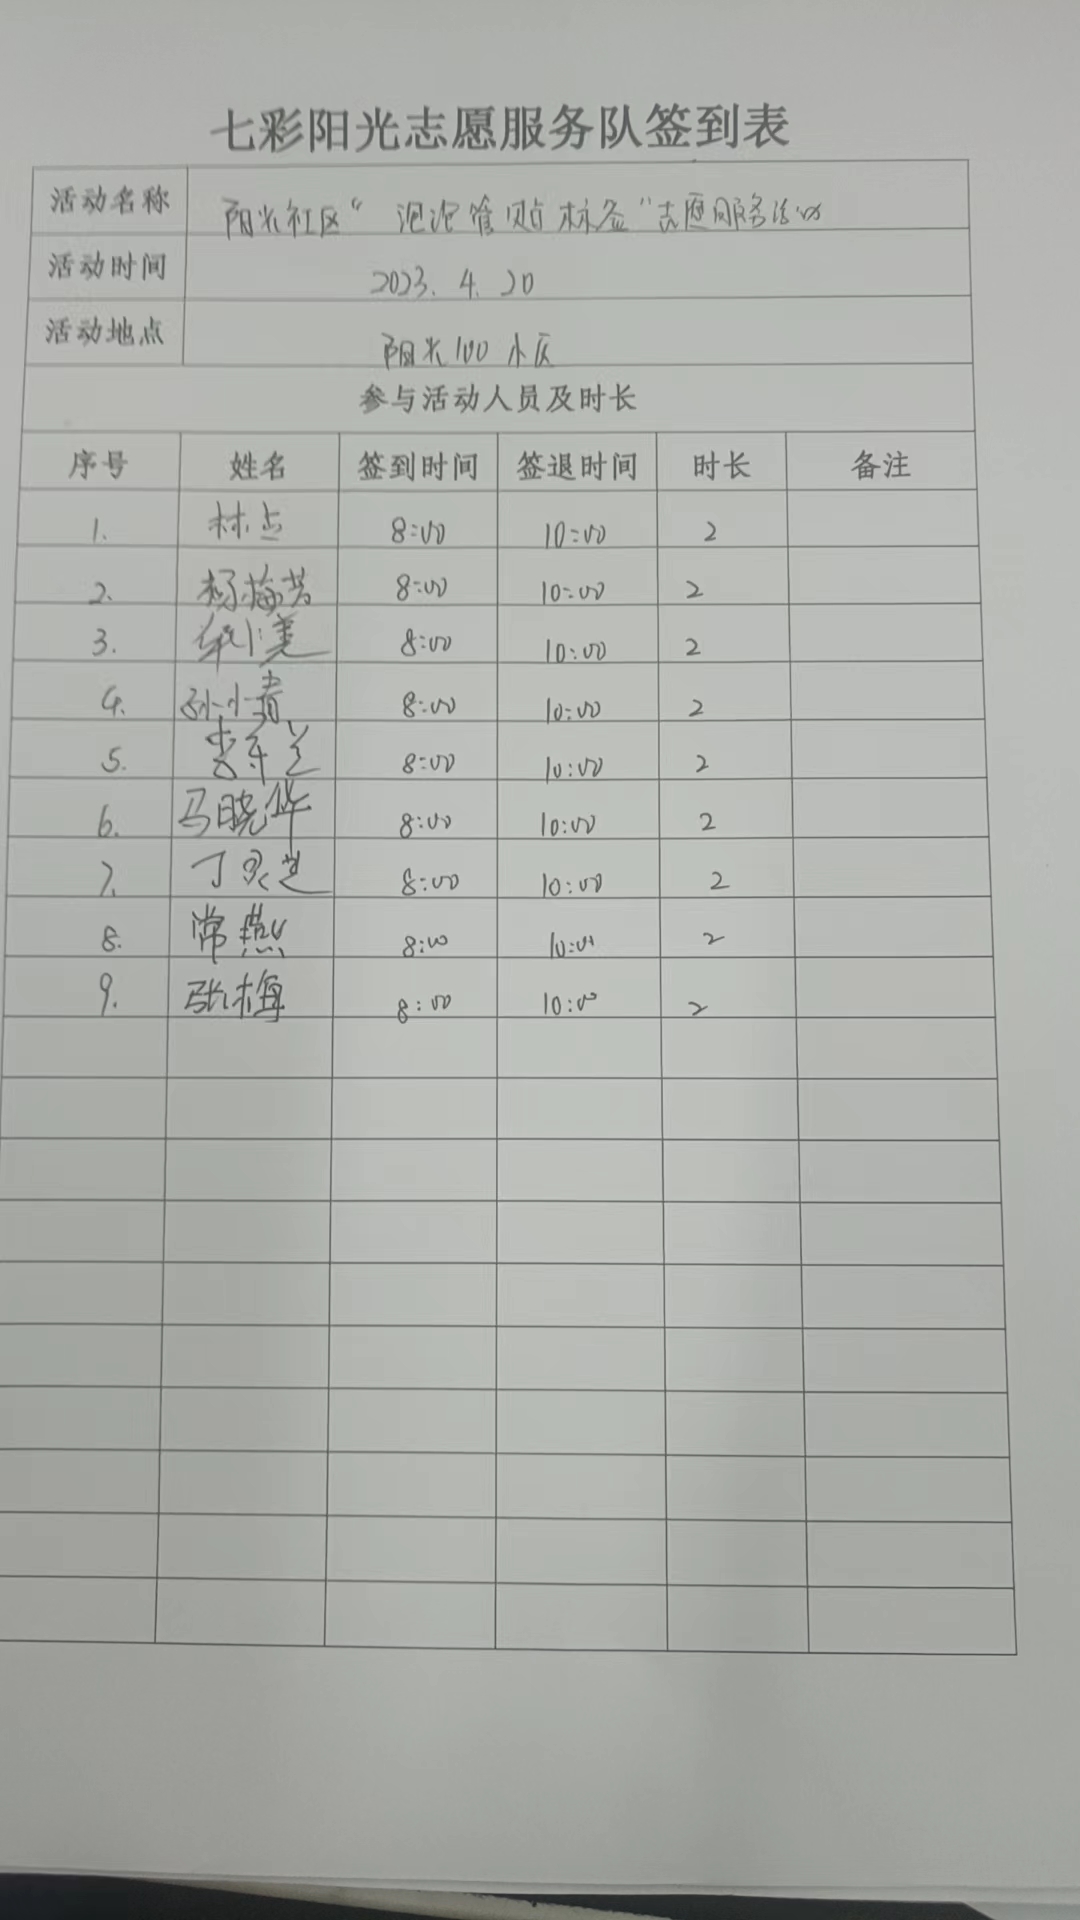 七彩阳光志愿服务队签到表
活动名称 阳光社区“泡泡管贴标签”志愿服务活动
活动时间 2023.4.20
活动地点 阳光100小区
参与活动人员及时长
序号 姓名 签到时间 签退时间 时长 备注
1. 林 8:00 10:00 2
2. 杨梅芳 8:00 10:00 2
3. 8:00 10:00 2
4. 孙小青 8:00 10:00 2
5. 8:00 10:00 2
6. 马晓华 8:00 10:00 2
7. 丁灵芝 8:00 10:00 2
8. 常燕 8:00 10:00 2
9. 张梅 8:00 10:00 2